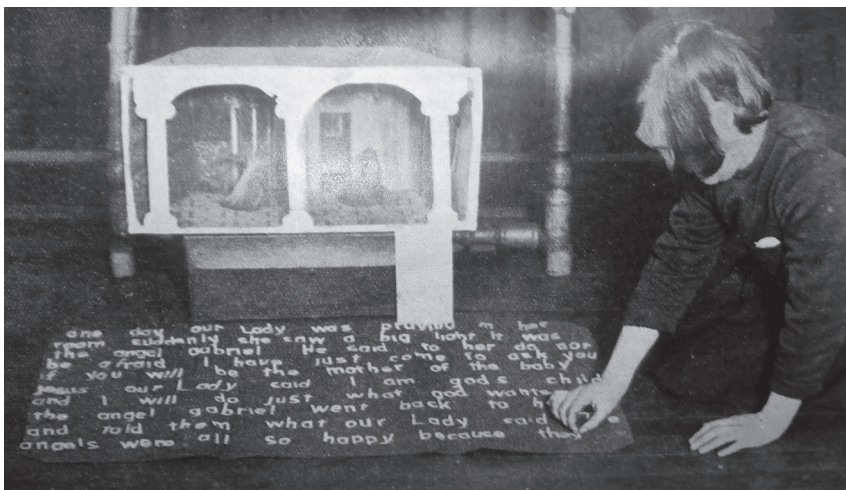 one day our Lady was praying in her
room suddenly she saw a big light it was
the angel gabriel He said to her do not
be afraid I have just come to ask you
if you will be the mother of the baby
jesus our Lady said I am gods child
and I will do just what god wants
the angel gabriel went back to
and told them what our Lady said
angels were all so happy because they